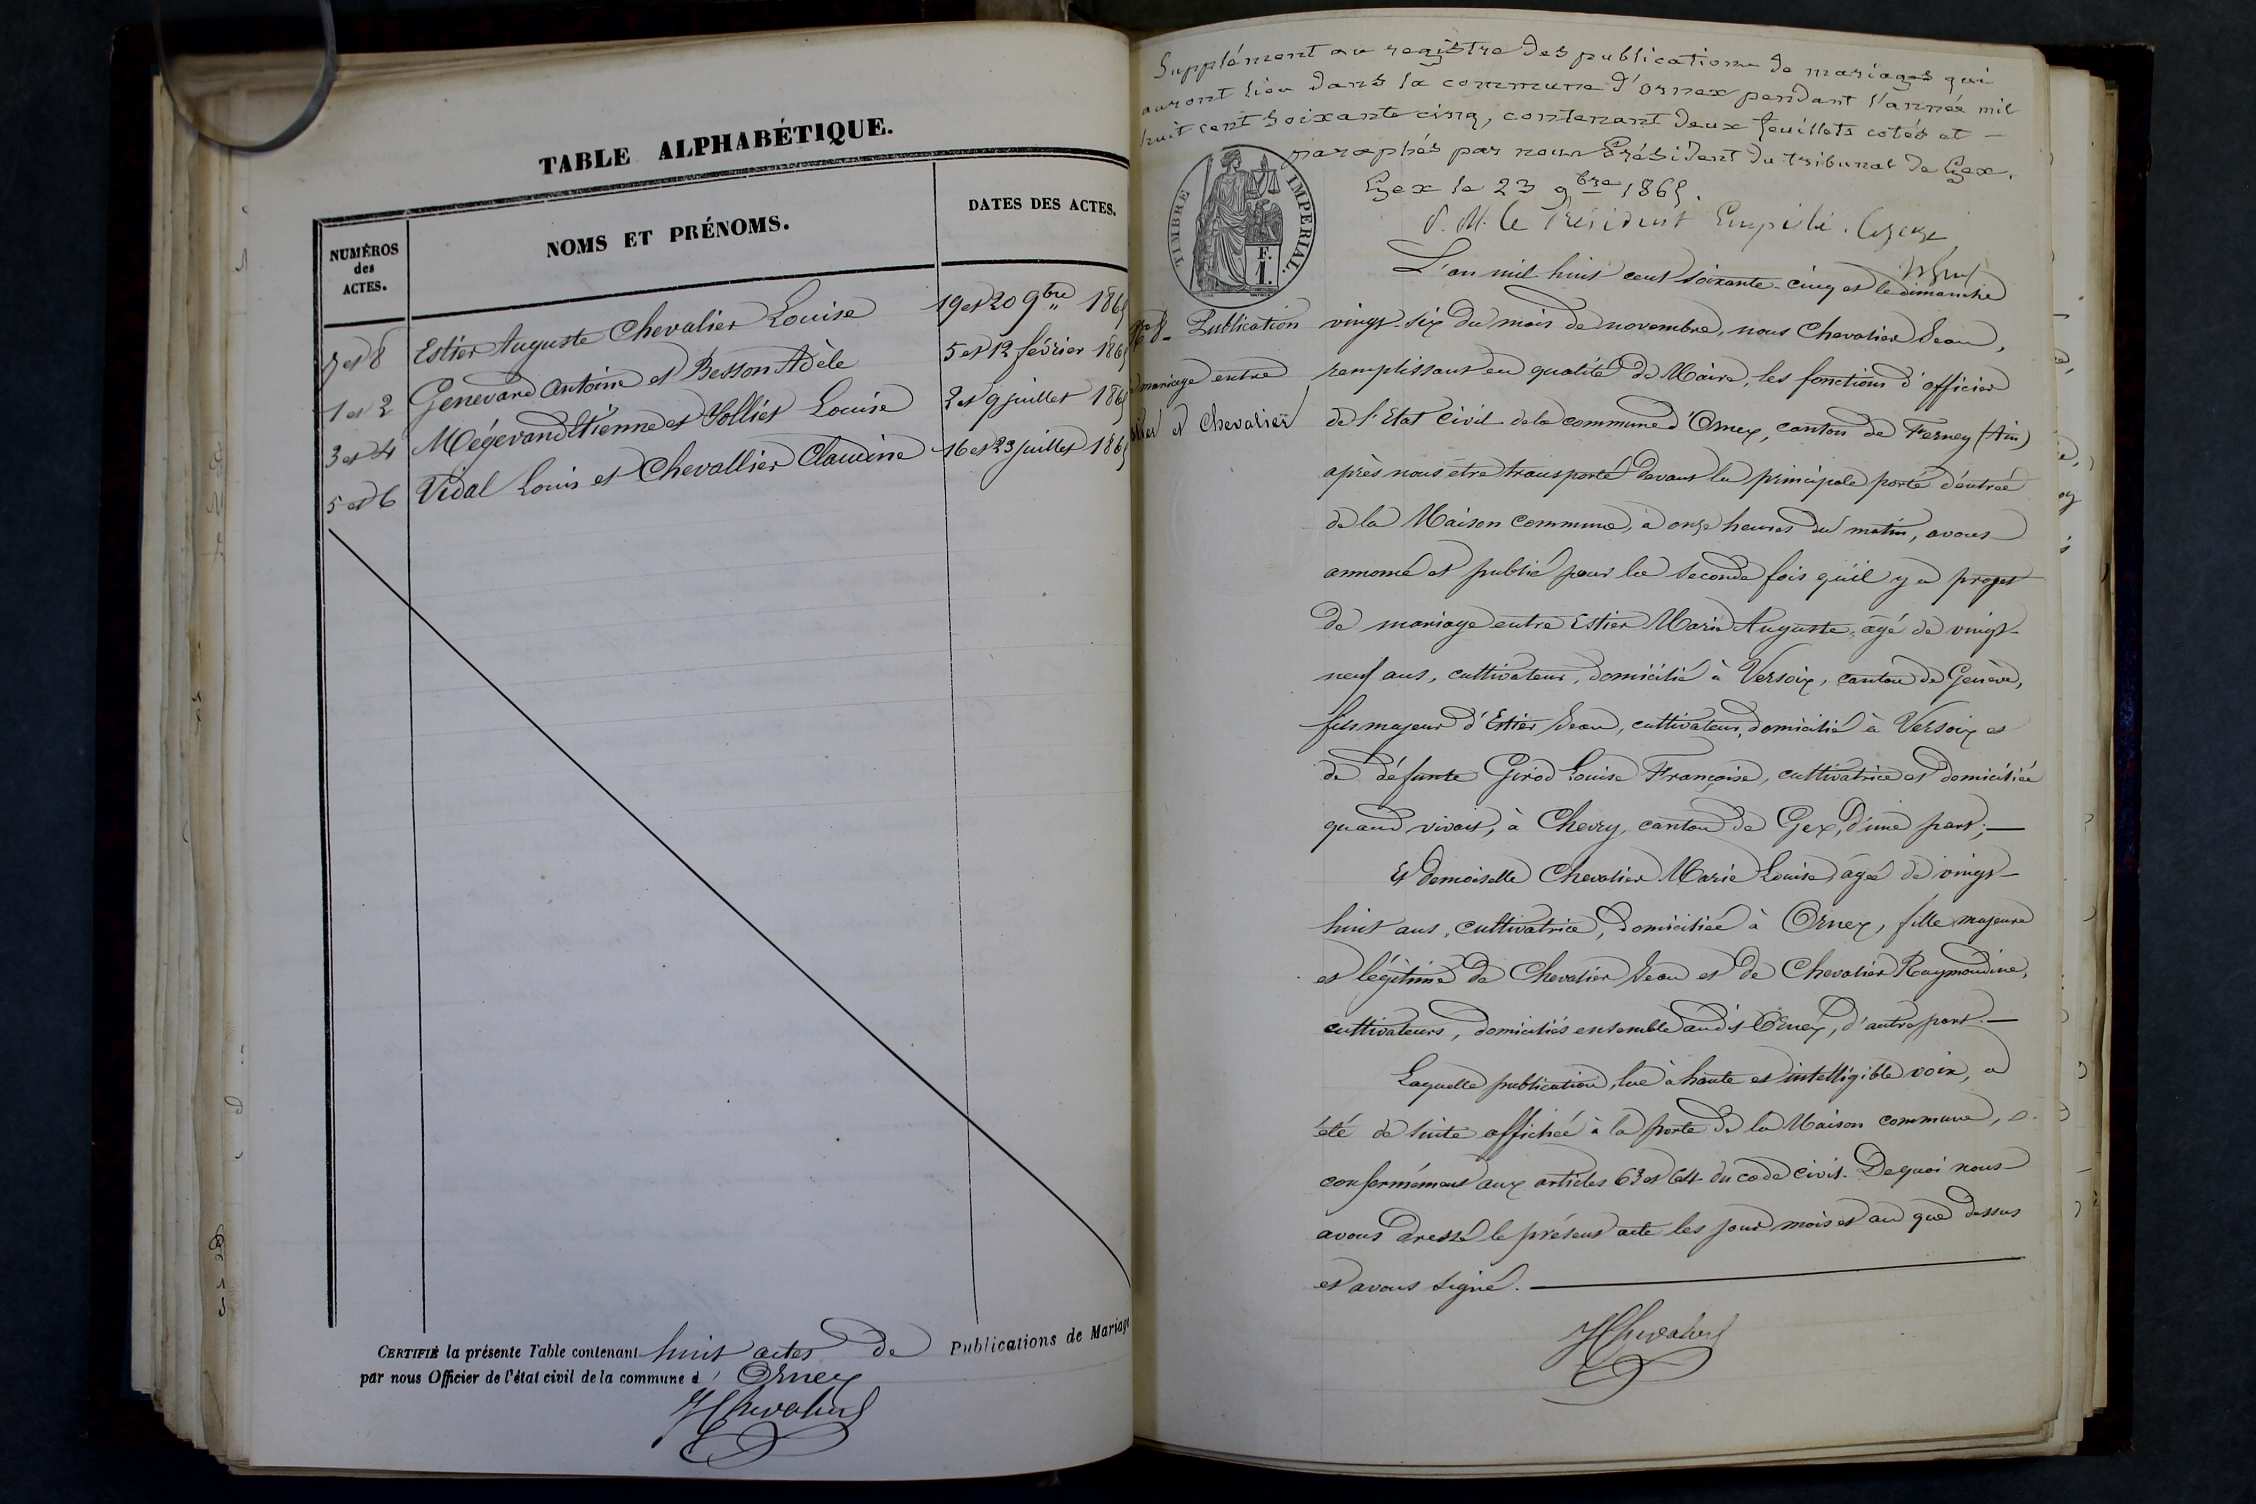 TABLE ALPHABÉTIQUE.
NUMÉROS des ACTES.
NOMS ET PRÉNOMS.
DATES DES ACTES.
7 et 8 Estier Auguste Chevalier Louise 19 et 20 9bre 1865
1 et 2 Genevard Antoine et Besson Adèle 5 et 12 février 1865
3 et 4 Mégevand Etienne et Jolliet Louise 2 et 9 juillet 1865
5 et 6 Vidal Louis et Chevallier Claudine 16 et 23 juillet 1865
CERTIFIÉ la présente Table contenant huit actes de Publications de Mariage
par nous Officier de l'état civil de la commune d'Ornex
JChevalier
Supplément au registre des publications de mariages qui
auront lieu dans la commune d'Ornex pendant l'année mil
huit cent soixante cinq, contenant deux feuillets cotés et
paraphés par nous Président du tribunal de Gex.
Gex le 23 9bre 1865.
P. M. le Président Empêché
TIMBRE IMPERIAL.
F.
1.
L'an mil huit cent soixante-cinq et le dimanche
vingt-six du mois de novembre, nous Chevalier Jean,
remplissant en qualité de Maire, les fonctions d'officier
de l'Etat Civil de la commune d'Ornex, canton de Ferney (Ain)
après nous être transporté devant la principale porte d'entrée
de la Maison Commune, à onze heures du matin, avons
annoncé et publié pour la seconde fois qu'il y a projet
de mariage entre Estier Marie Auguste, âgé de vingt-
neuf ans, cultivateur, domicilié à Versoix, canton de Genève,
fils majeur d'Estier Jean, cultivateur, domicilié à Versoix et
de défunte Girod Louise Françoise, cultivatrice et domiciliée
quand vivait, à Chevry, canton de Gex, d'une part;
Et demoiselle Chevalier Marie Louise, âgée de vingt-
huit ans, cultivatrice, domiciliée à Ornex, fille majeure
et légitime de Chevalier Jean et de Chevalier Raymondine,
cultivateurs, domiciliés ensemble audit Ornex, d'autre part.
Laquelle publication, lue à haute et intelligible voix, a
été de suite affichée à la porte de la Maison commune,
conformément aux articles 63 et 64 du code civil. De quoi nous
avons dressé le présent acte les jour mois et an que dessus
et avons signé.
JChevalier
No 8. Publication
mariage entre
et Chevalier